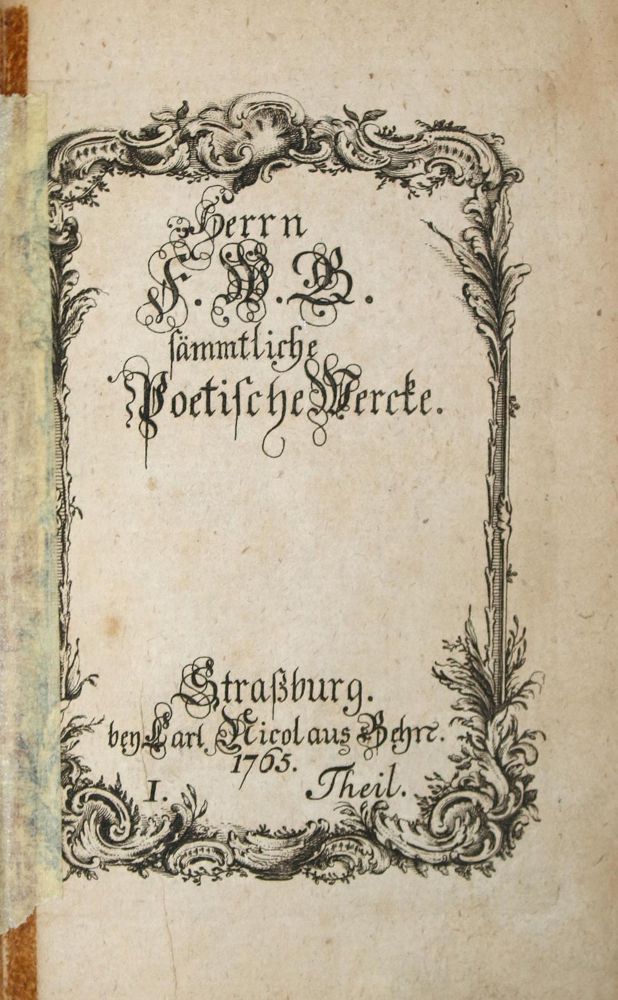 Herrn
F. W. G.
sämmtliche
Poetische Wercke.
Straßburg.
bey Carl Nicolaus Behn.
1765.
I. Theil.